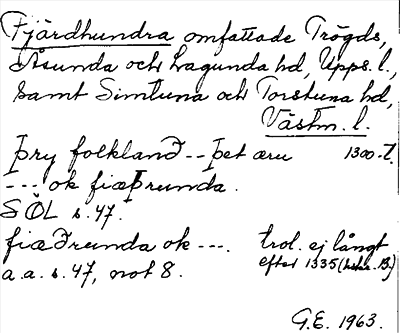 Fjärdhundra omfattade Trögds,
Åsunda och Lagunda hd, Upps. l.,
samt Simtuna och Torstuna hd,
Västm. l.
Þry folkland -- þet æru 1300-t.
--- ok fiæþrunda.
SÖL s. 47.
fiæðrunda ok ---. trol. ej långt
a.a. s. 47, not 8. efter 1335 (hskr. B.)
G.E. 1963.